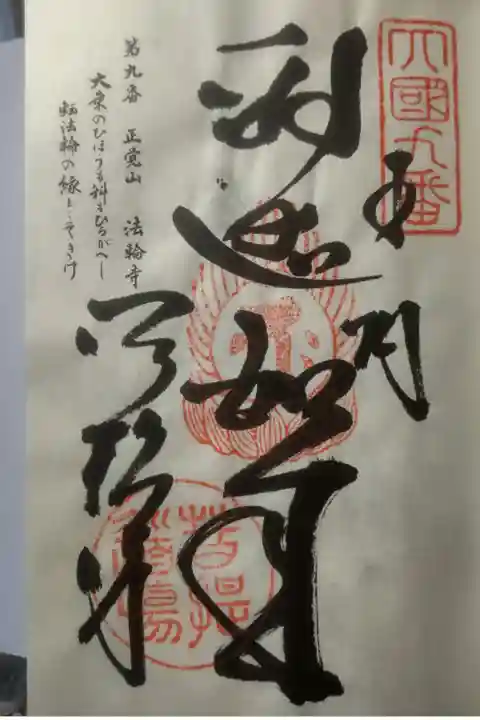 四國九番
奉納
釈迦如来
法輪寺
第九番 正覚山 法輪寺
大乗のひほうも科もひるがへし
転法輪の縁とこそきけ